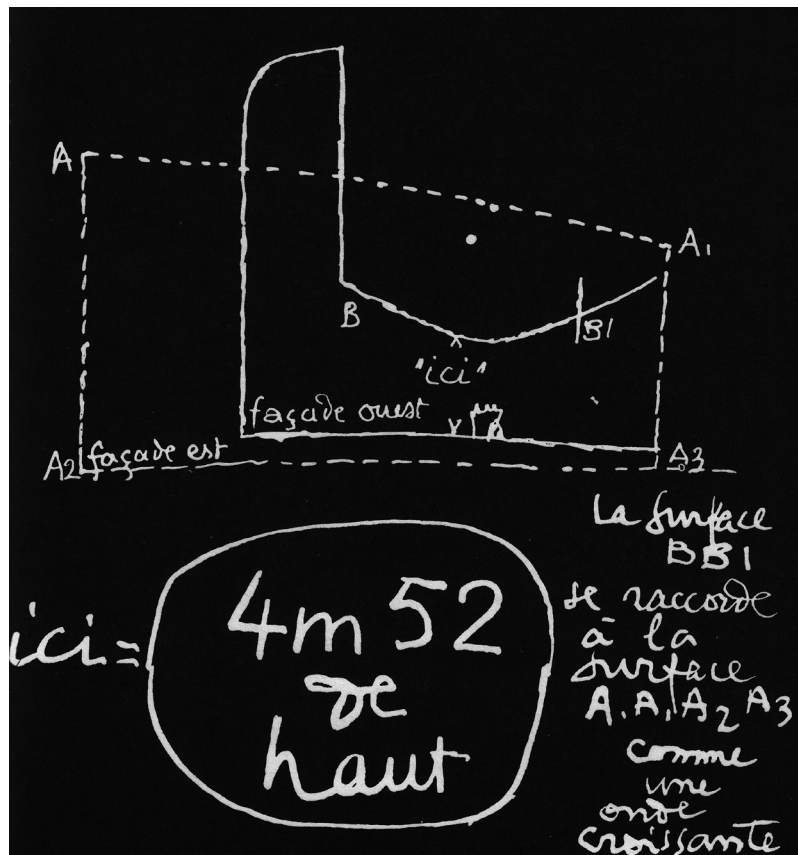 A
A1
B
B1
"ici"
façade ouest
A2 façade est
A3
La surface
BB1
se raccorde
à la
surface
A.A1A2A3
comme
une
onde
croissante
ici=
4m52
de
haut